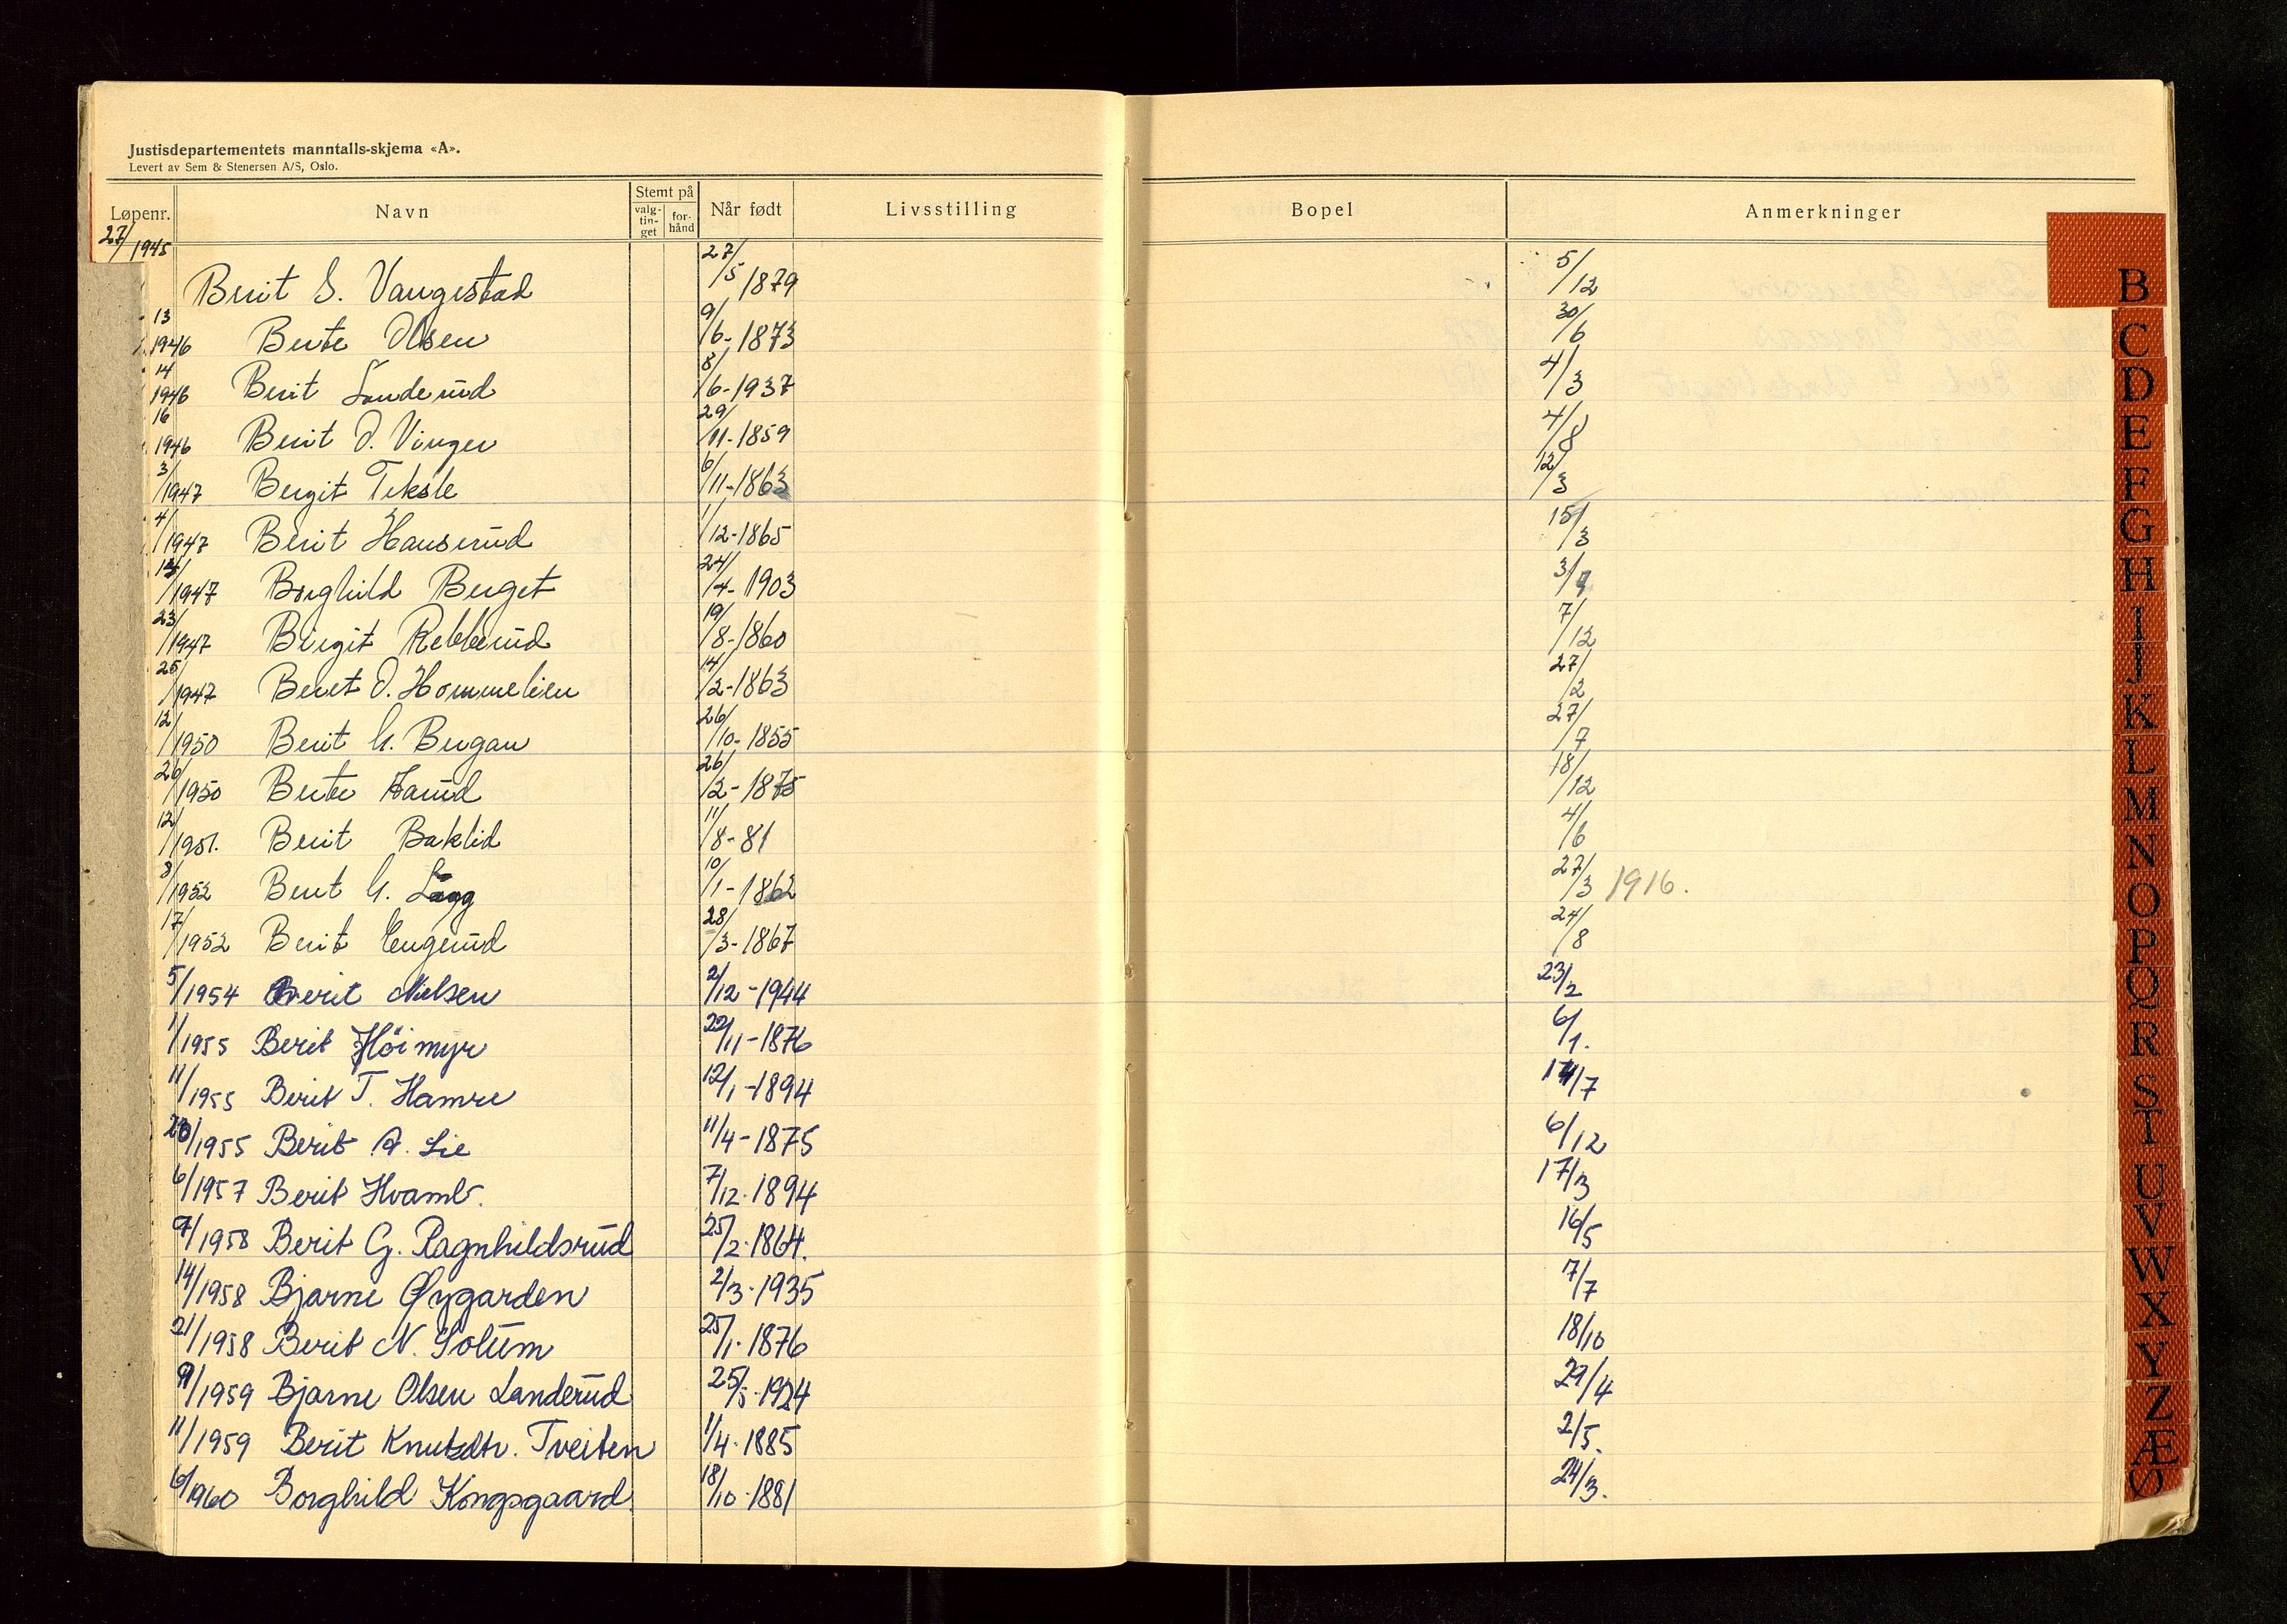 Justisdepartementets manntalls-skjema «A».
Levert av Sem & Stenersen A/S, Oslo.
Løpenr. Navn Stemt på valg-tin-get for-hånd Når født Livsstilling Bopel Anmerkninger
27/1945 Berit S. Vangestad 27/5 1879 5/12
13 1946 Berte Olsen 9/6-1873 30/6
14 1946 Berit Landerud 8/6-1937 4/3
16 1946 Berit O. Vinger 29/11-1859 4/8
3/1947 Bergit Teksle 6/11-1863 12/3
4/1947 Berit Hauserud 1/12-1865 15/3
1947 Borghild Berget 24/4-1903 3/7
23/1947 Birgit Rebberud 19/8-1860 7/12
25/1947 Beret O. Hommelien 14/2-1863 27/2
12/1950 Berit G. Bergan 26/10-1855 27/7
26/1950 Berte 26/2-1875 18/12
12/1951. Berit Baklid 11/8-81 4/6
8/1952 Berit G. Lågg 10/1-1862 27/3 1916.
17/1952 Berit Engerud 28/3-1867 24/8
5/1954 Berit Nielsen 2/12-1944 23/2
1/1955 Berit Höimyr 22/11-1876 6/1.
11/1955 Berit T. Hamre 12/1-1894 14/7
1955 Berit A. Lie 11/4-1875 6/12
6/1957 Berit Hvamb. 7/12.1894 17/3
9/1958 Berit G. Ragnhildsrud 25/2.1864. 16/5
14/1958 Bjarne Øygarden 2/3.1935 7/7
21/1958 Berit N. Solum 25/1.1876 18/10
9/1959 Bjarne Olsen Landerud 25/5-1924 29/4
11/1959 Berit Knutsdtr. Tveiten 1/4.1885 2/5.
6/1960 Borghild Kongsgaard. 18/10.1881 24/3.
B
C
D
E
F
G
H
I
J
K
L
M
N
O
P
Q
R
S
T
U
V
W
X
Y
Z
Æ
Ø